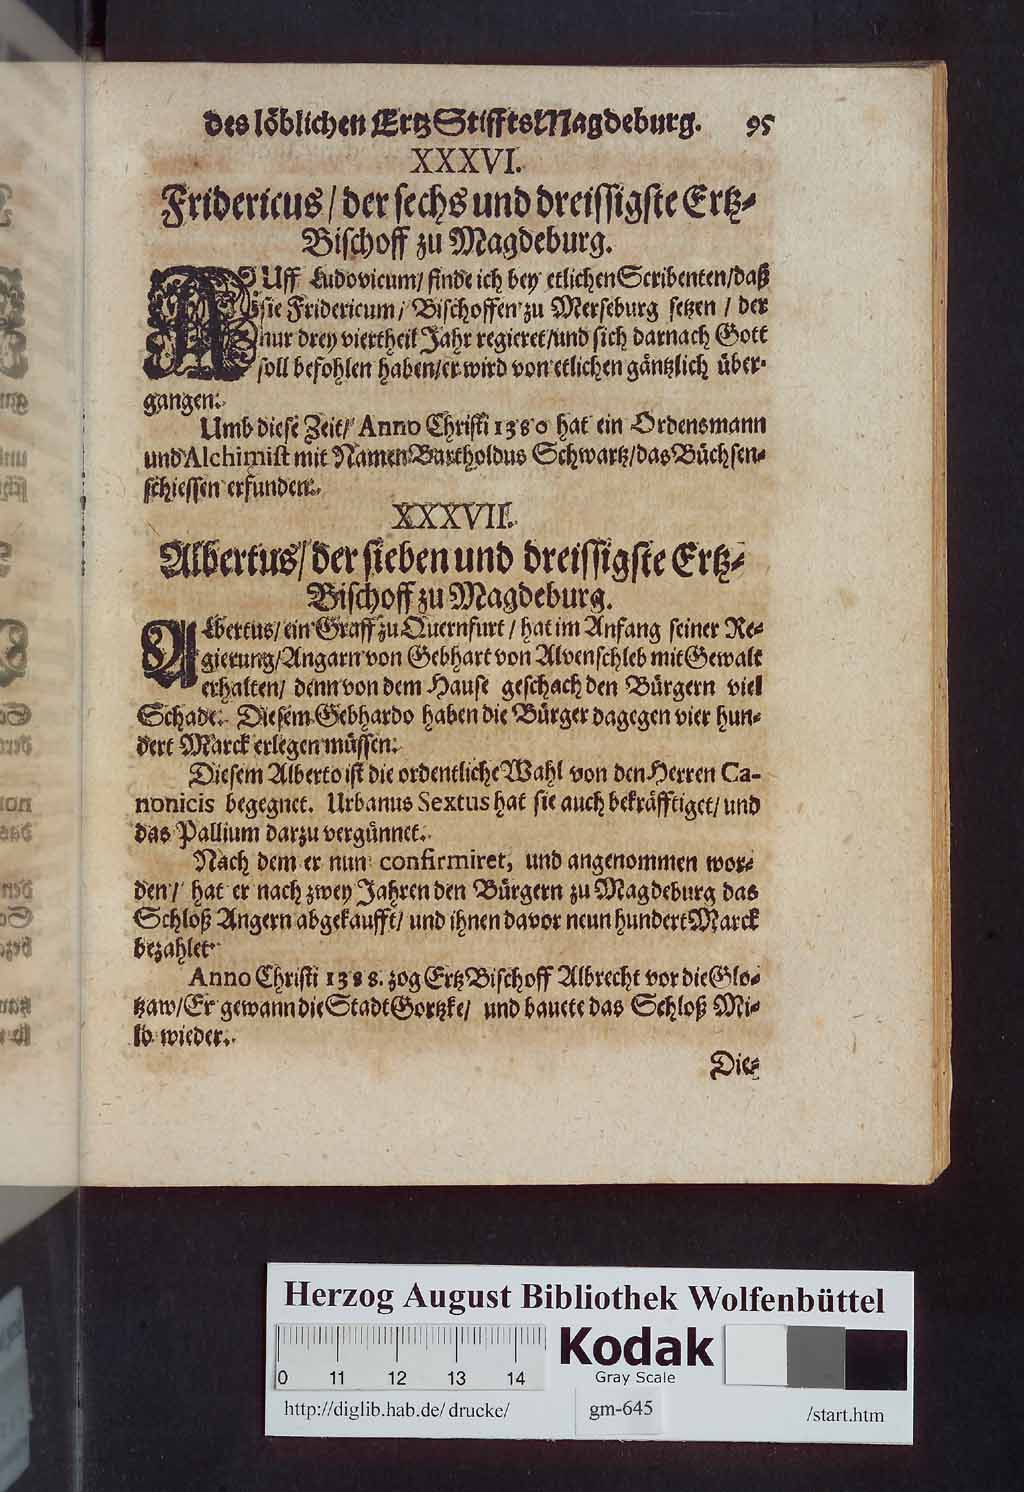 des löblichen Ertz Stiffts Magdeburg. 95
XXXVI.
Fridericus / der sechs und dreissigste Ertz-
Bischoff zu Magdeburg.
AUff Ludovicum / finde ich bey etlichen Scribenten / daß
sie Fridericum / Bischoffen zu Merseburg setzen / der
nur drey viertheil Jahr regieret / und sich darnach Gott
soll befohlen haben / er wird von etlichen gäntzlich über-
gangen.
Umb diese Zeit / Anno Christi 1380 hat ein Ordensmann
und Alchimist mit Namen Bartholdus Schwartz / das Büchsen-
schiessen erfunden.
XXXVII.
Albertus / der sieben und dreissigste Ertz-
Bischoff zu Magdeburg.
ALbertus / ein Graff zu Quernfurt / hat im Anfang seiner Re-
gierung / Angarn von Gebhart von Alvenschleb mit Gewalt
erhalten / denn von dem Hause geschach den Bürgern viel
Schade. Diesem Gebhardo haben die Bürger dagegen vier hun-
dert Marck erlegen müssen.
Diesem Alberto ist die ordentliche Wahl von den Herren Ca-
nonicis begegnet. Urbanus Sextus hat sie auch bekräfftiget / und
das Pallium darzu vergünnet.
Nach dem er nun confirmiret, und angenommen wor-
den / hat er nach zwey Jahren den Bürgern zu Magdeburg das
Schloß Angern abgekaufft / und ihnen davor neun hundert Marck
bezahlet.
Anno Christi 1388. zog Ertz Bischoff Albrecht vor die Glo-
tzaw / Er gewann die Stadt Gortzke / und bauete das Schloß Mi-
lo wieder.
Die-
Herzog August Bibliothek Wolfenbüttel
Kodak
Gray Scale
0 11 12 13 14
http://diglib.hab.de/drucke/ gm-645 /start.htm